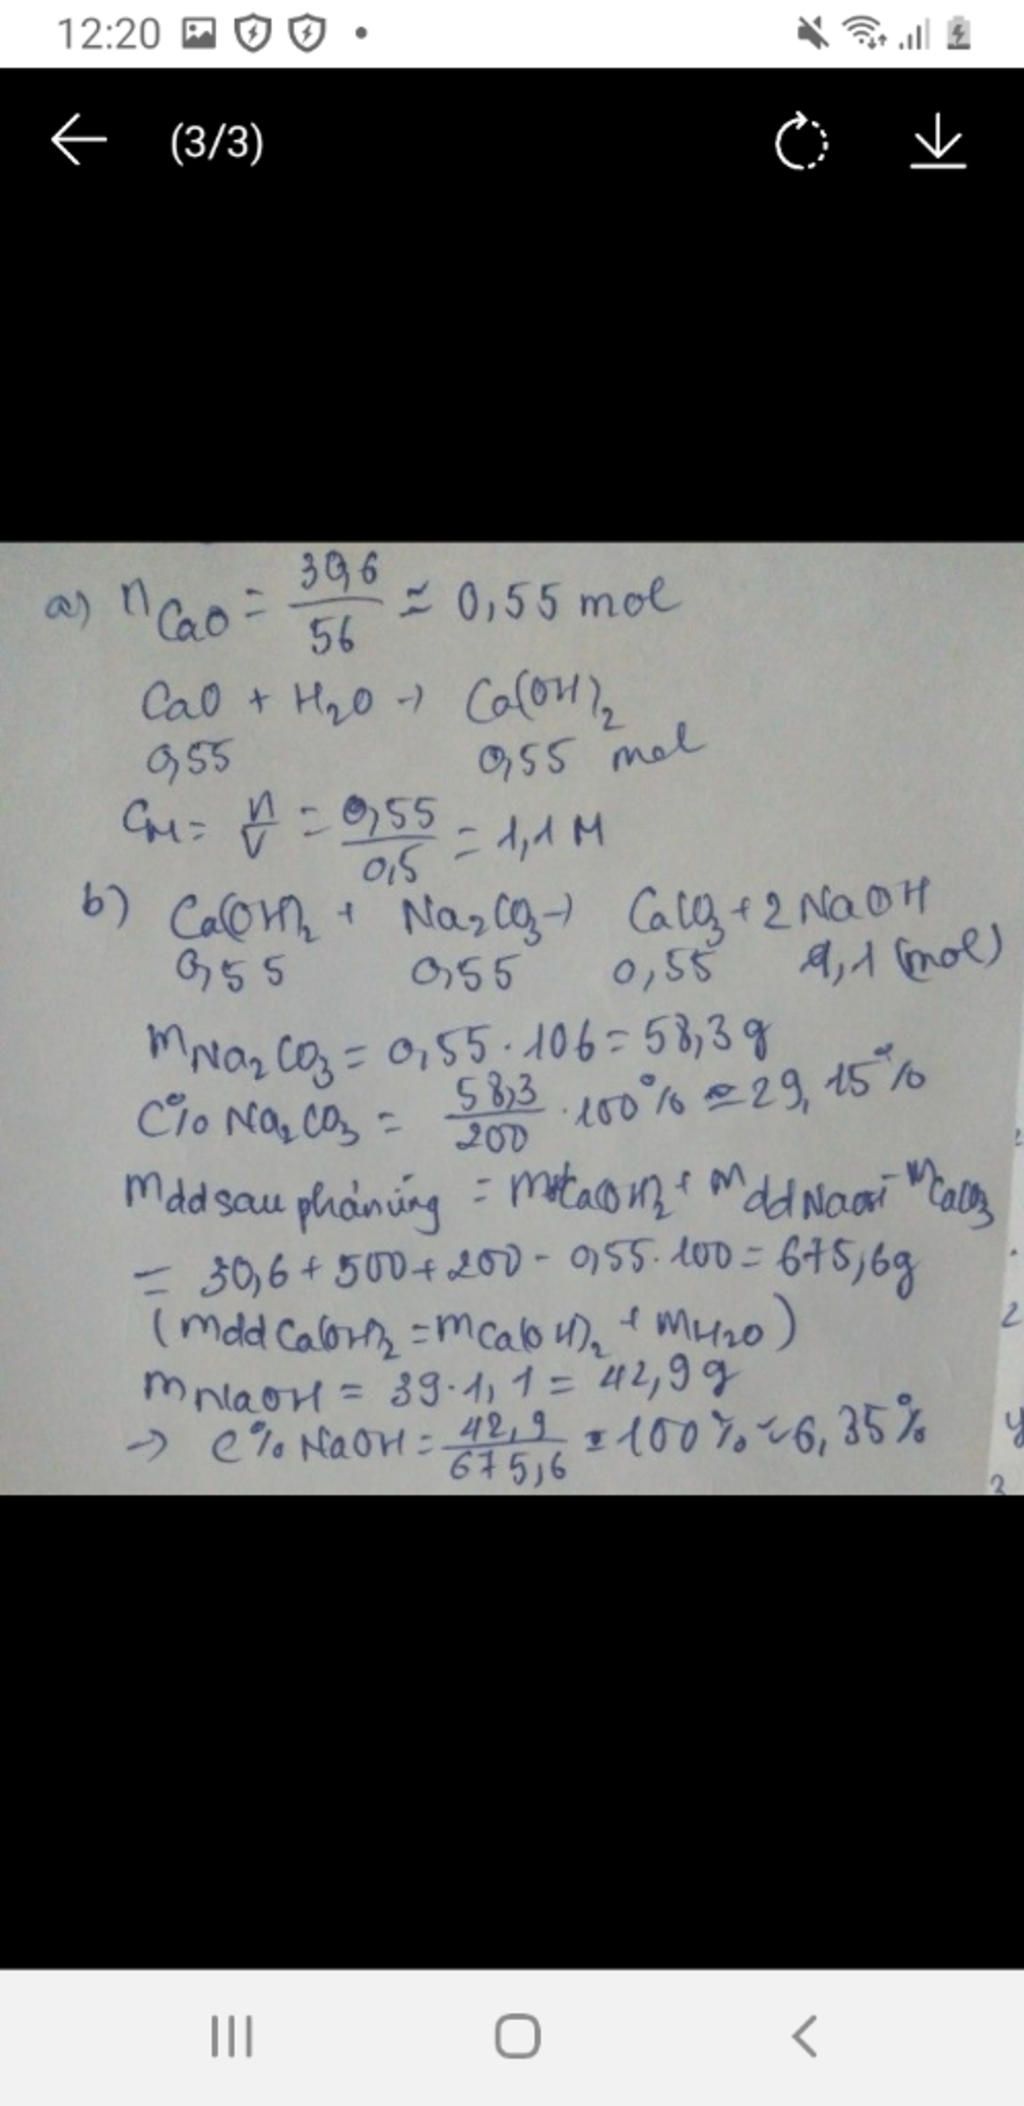 12:20
(3/3)
a) nCaO = 30,6/56 ≈ 0,55 mol
CaO + H2O → Ca(OH)2
0,55 0,55 mol
CM = n/V = 0,55/0,5 = 1,1 M
b) Ca(OH)2 + Na2CO3 → CaCO3 + 2NaOH
0,55 0,55 0,55 1,1 (mol)
mNa2CO3 = 0,55 . 106 = 58,3 g
C% Na2CO3 = 58,3/200 . 100% = 29,15%
mdd sau phản ứng = mCa(OH)2 + mddNaOH - mCaCO3
= 30,6 + 500 + 200 - 0,55 . 100 = 675,6g
(mdd Ca(OH)2 = mCa(OH)2 + mH2O)
mNaOH = 39 . 1,1 = 42,9 g
→ C% NaOH = 42,9/675,6 = 100% ≈ 6,35%